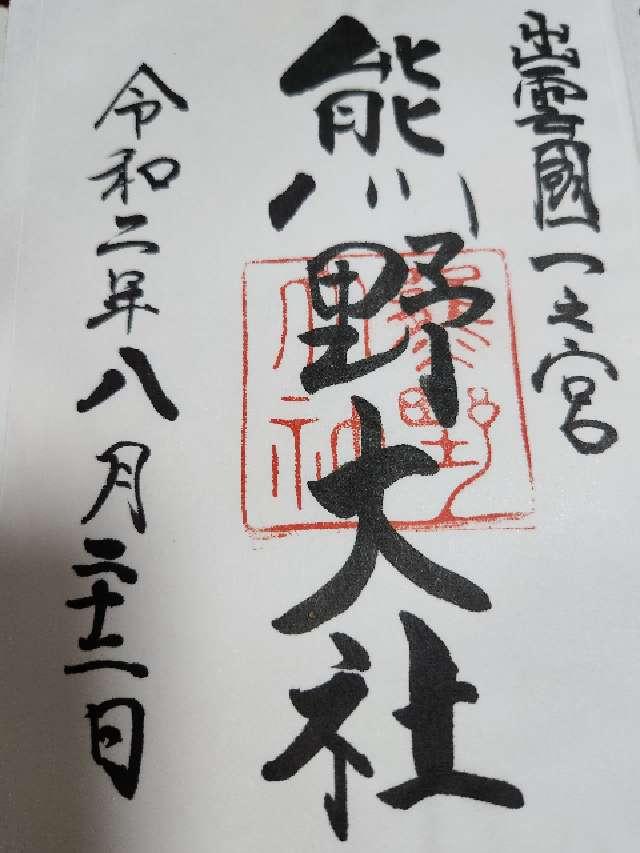 出雲國一之宮
熊野大社
令和二年八月二十一日